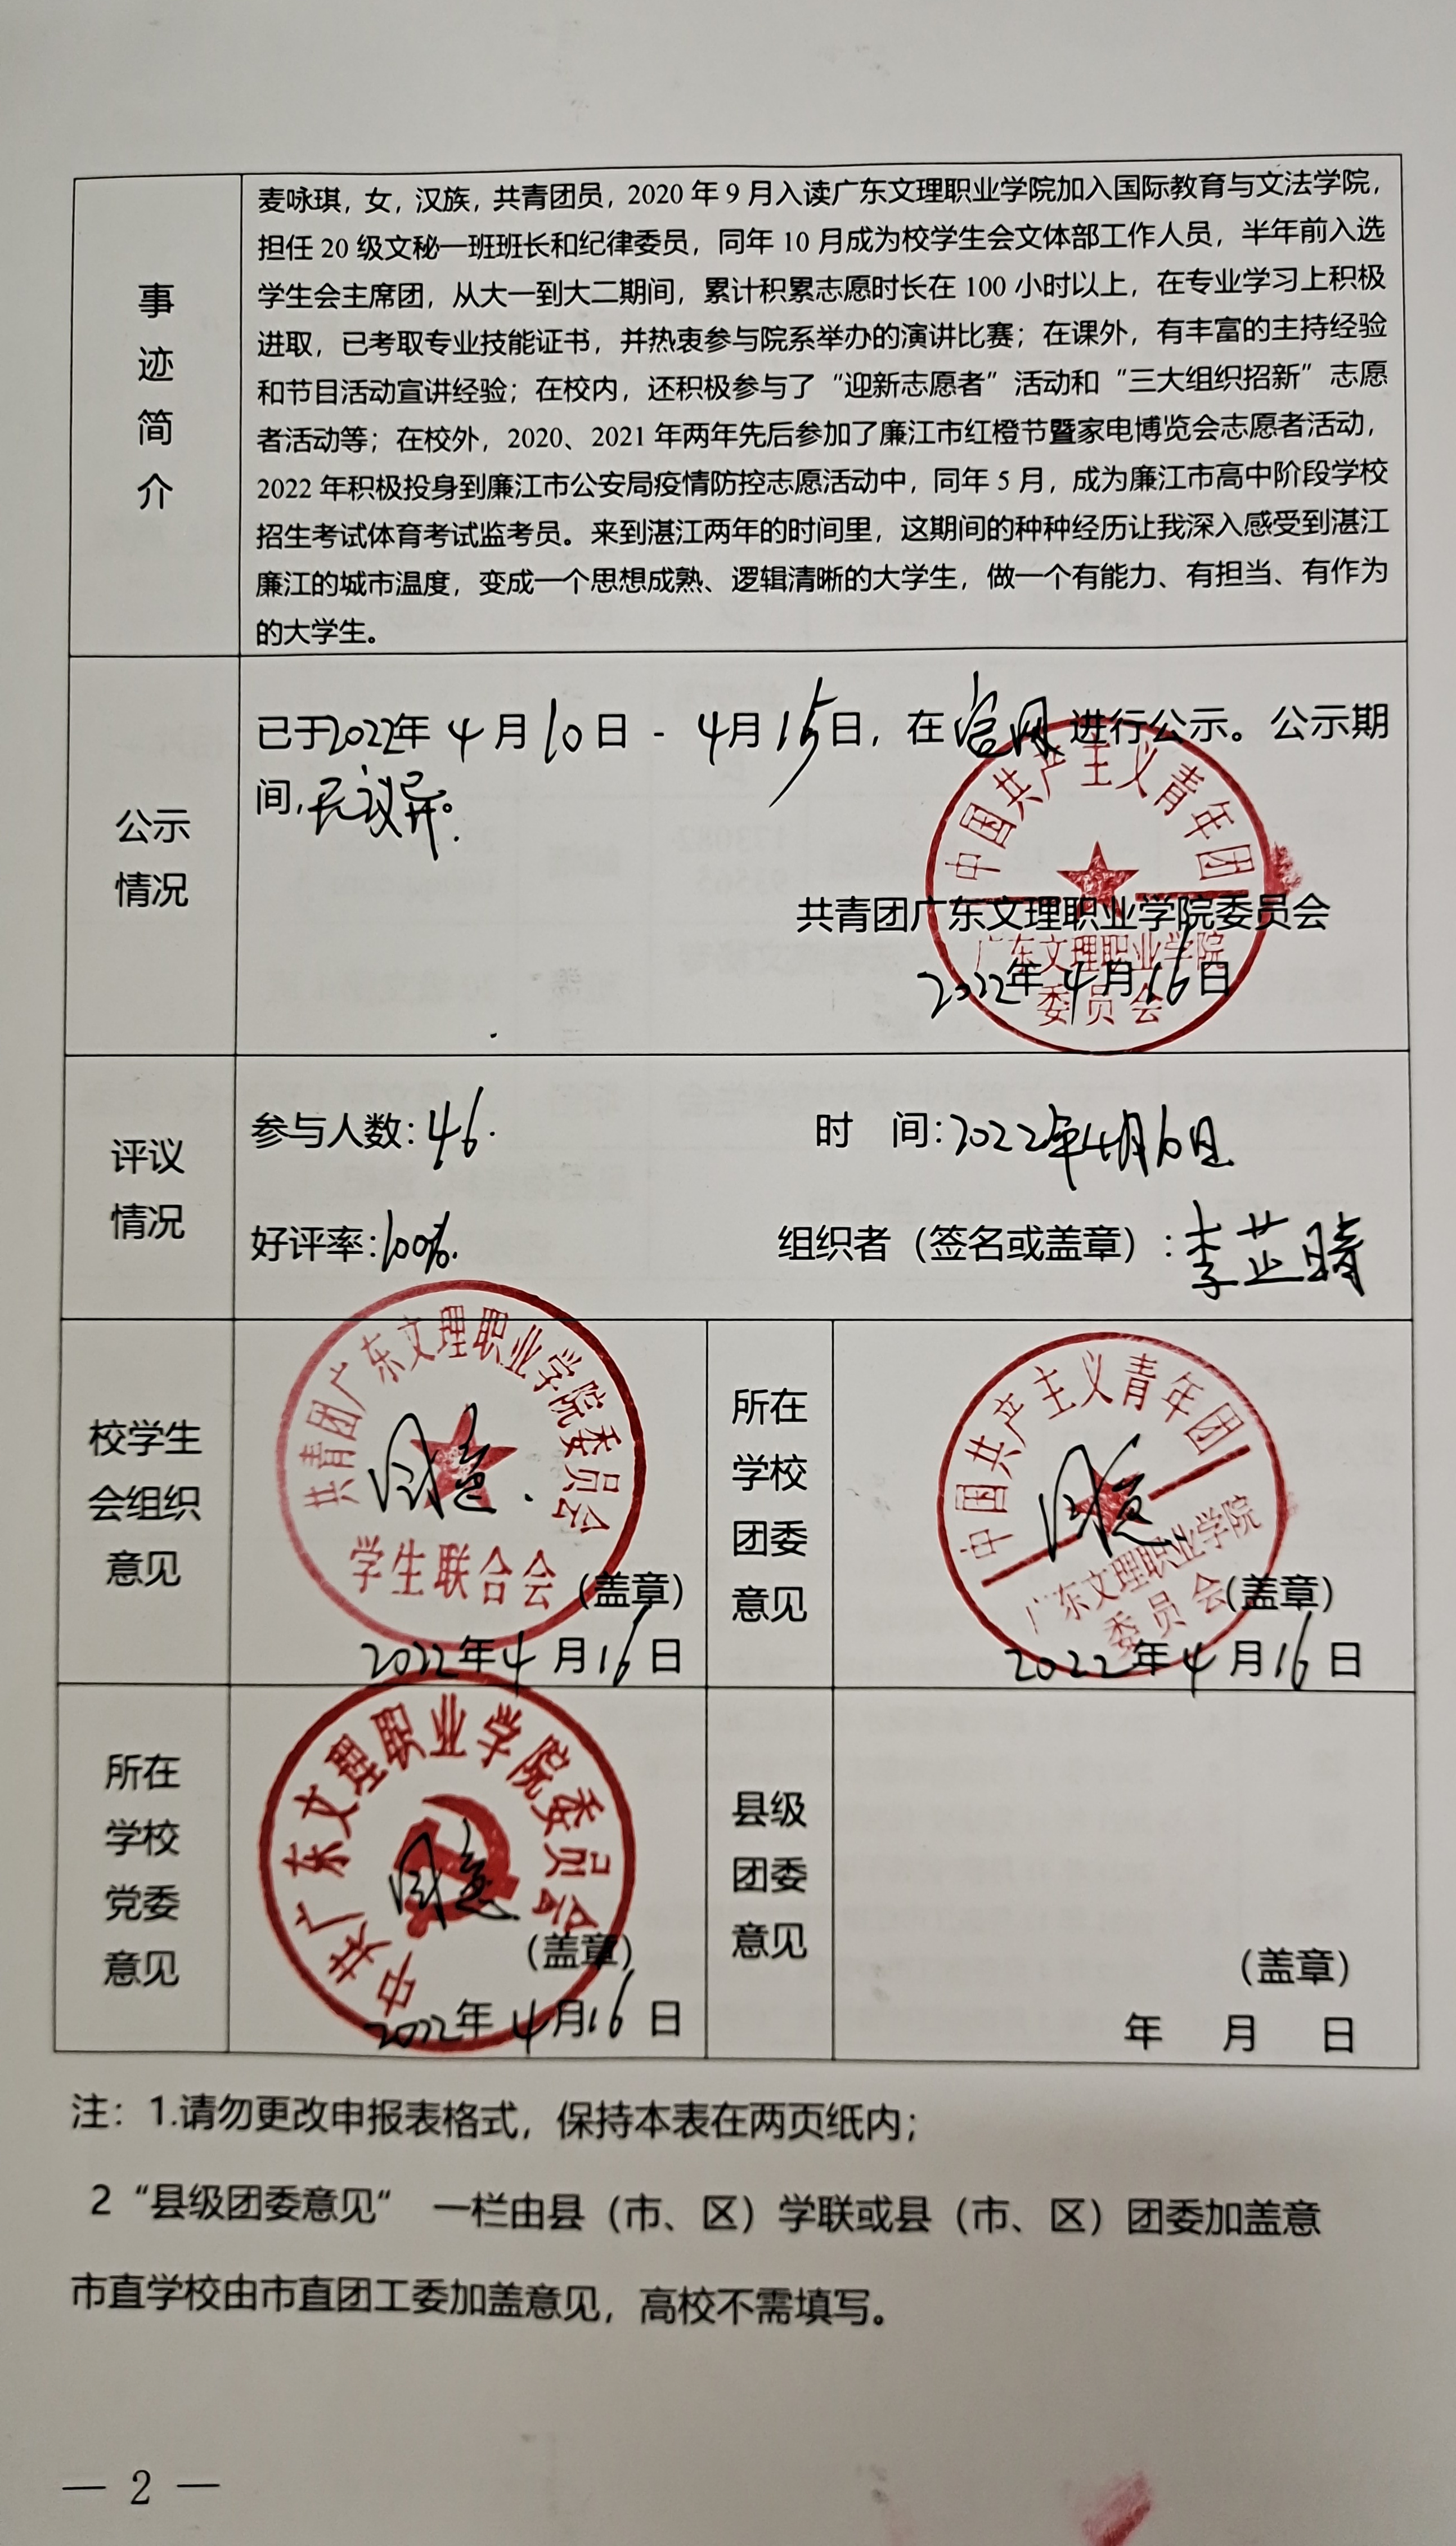 事迹简介
麦咏琪，女，汉族，共青团员，2020年9月入读广东文理职业学院加入国际教育与文法学院，
担任20级文秘一班班长和纪律委员，同年10月成为校学生会文体部工作人员，半年前入选
学生会主席团，从大一到大二期间，累计积累志愿时长在100小时以上，在专业学习上积极
进取，已考取专业技能证书，并热衷参与院系举办的演讲比赛；在课外，有丰富的主持经验
和节目活动宣讲经验；在校内，还积极参与了“迎新志愿者”活动和“三大组织招新”志愿
者活动等；在校外，2020、2021年两年先后参加了廉江市红橙节暨家电博览会志愿者活动，
2022年积极投身到廉江市公安局疫情防控志愿活动中，同年5月，成为廉江市高中阶段学校
招生考试体育考试监考员。来到湛江两年的时间里，这期间的种种经历让我深入感受到湛江
廉江的城市温度，变成一个思想成熟、逻辑清晰的大学生，做一个有能力、有担当、有作为
的大学生。
公示
情况
已于2022年4月10日-4月15日，在官网进行公示。公示期
间，无议异。
中国共产主义青年团
广东文理职业学院
委员会
共青团广东文理职业学院委员会
2022年4月16日
评议
情况
参与人数：46.
时 间：2022年4月16日
好评率：100%.
组织者（签名或盖章）：李芷晴
校学生
会组织
意见
共青团广东文理职业学院委员会
学生联合会
同意.
（盖章）
2022年4月16日
所在
学校
团委
意见
中国共产主义青年团
广东文理职业学院
委员会
同意
（盖章）
2022年4月16日
所在
学校
党委
意见
中共广东文理职业学院委员会
同意
（盖章）
2022年4月16日
县级
团委
意见
（盖章）
年 月 日
注：1.请勿更改申报表格式，保持本表在两页纸内；
2“县级团委意见” 一栏由县（市、区）学联或县（市、区）团委加盖意
市直学校由市直团工委加盖意见，高校不需填写。
— 2 —